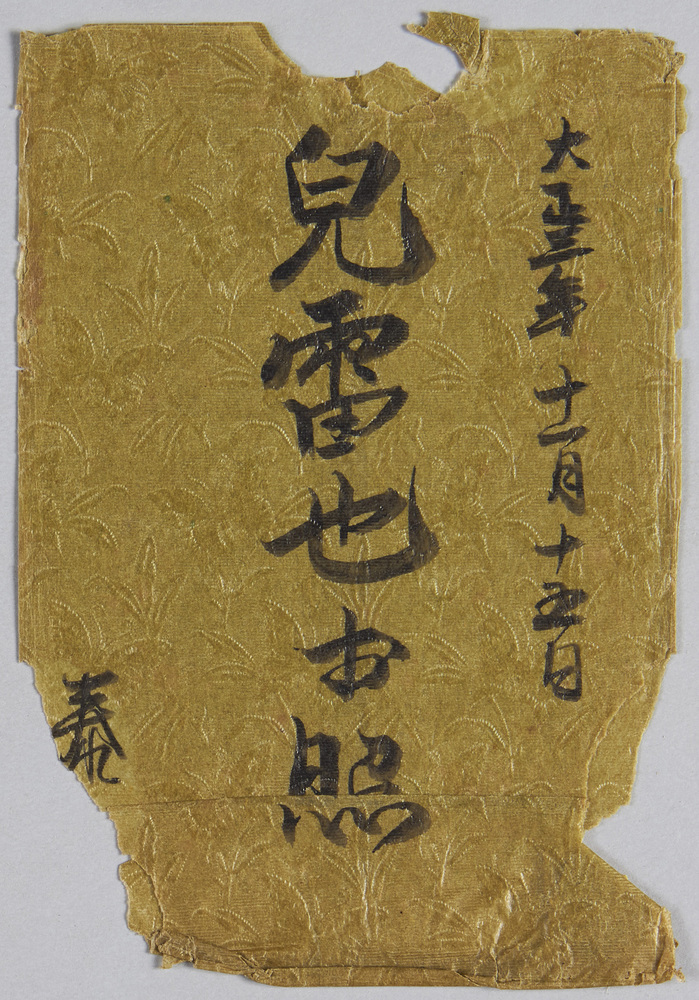 大正三年 十一月 十五日
兒雷也お照